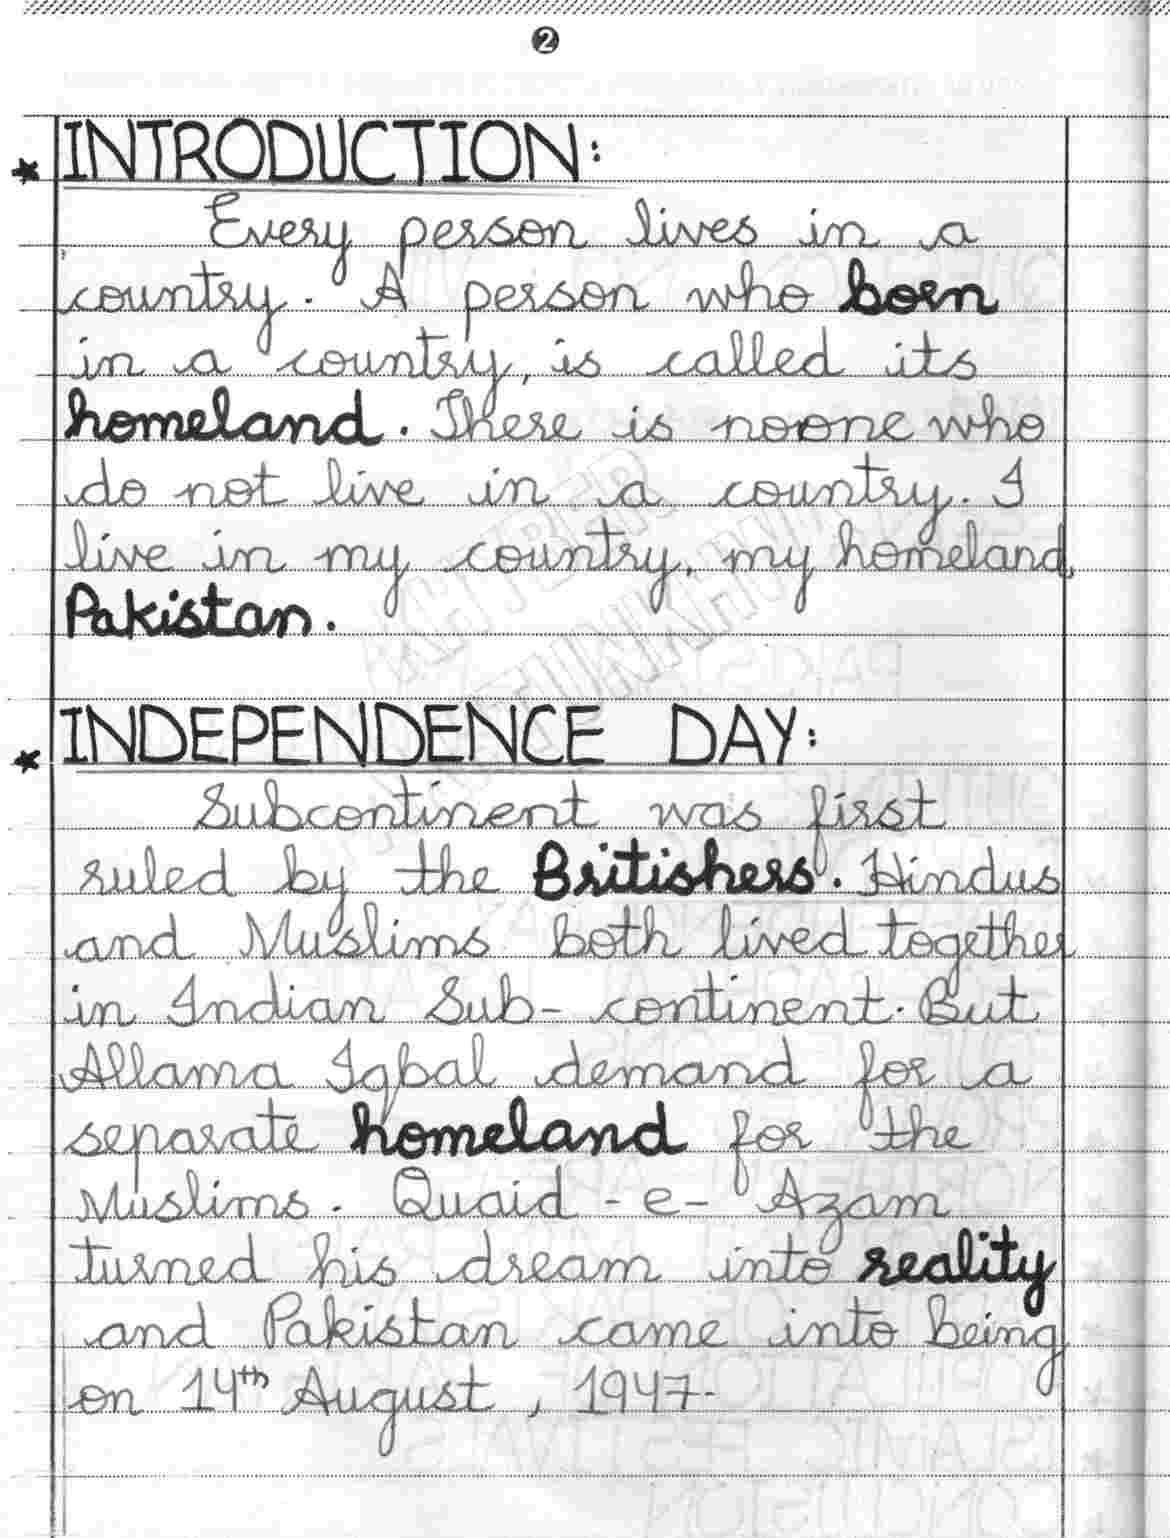 2
★ INTRODUCTION:
Every person lives in a
country. A person who born
in a country, is called its
homeland. There is noone who
do not live in a country. I
live in my country, my homeland,
Pakistan.
★ INDEPENDENCE DAY:
Subcontinent was first
ruled by the Britishers. Hindus
and Muslims both lived together
in Indian Sub-continent. But
Allama Iqbal demand for a
separate homeland for the
Muslims. Quaid-e-Azam
turned his dream into reality
and Pakistan came into being
on 14th August, 1947.